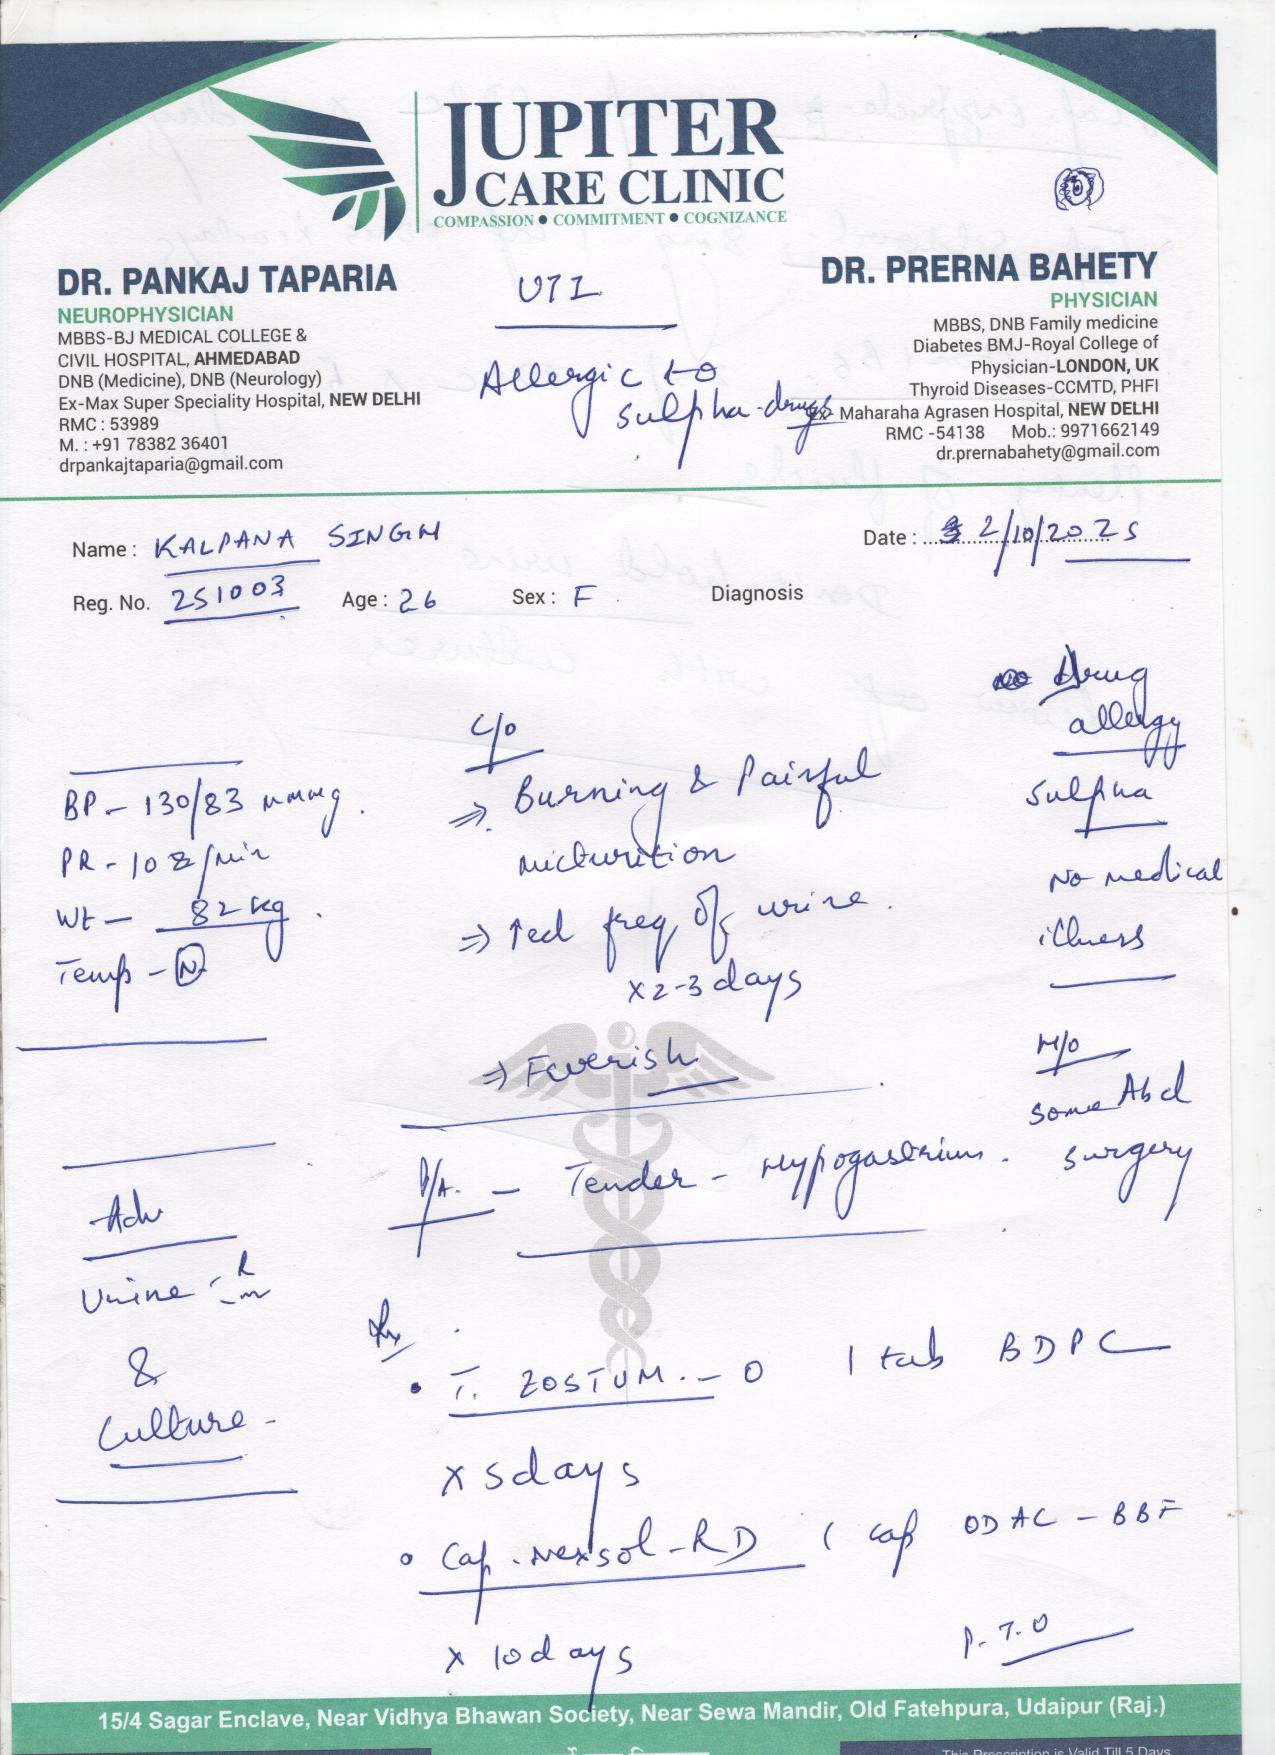 JUPITER
CARE CLINIC
COMPASSION ● COMMITMENT ● COGNIZANCE
DR. PANKAJ TAPARIA
NEUROPHYSICIAN
MBBS-BJ MEDICAL COLLEGE &
CIVIL HOSPITAL, AHMEDABAD
DNB (Medicine), DNB (Neurology)
Ex-Max Super Speciality Hospital, NEW DELHI
RMC : 53989
M. : +91 78382 36401
drpankajtaparia@gmail.com
UTI
Allergic to
sulpha-drugs
DR. PRERNA BAHETY
PHYSICIAN
MBBS, DNB Family medicine
Diabetes BMJ-Royal College of
Physician-LONDON, UK
Thyroid Diseases-CCMTD, PHFI
Ex- Maharaha Agrasen Hospital, NEW DELHI
RMC -54138 Mob.: 9971662149
dr.prernabahety@gmail.com
Name : KALPANA SINGH
Date : 2/10/2025
Reg. No. 251003 Age : 26 Sex : F Diagnosis
BP - 130/83 mmHg.
PR - 108/min
Wt - 82 kg.
Temp - N
Adv
Urine - R/m
&
Culture -
C/o
⇒ Burning & Painful
micturition
⇒ ↑ed freq of urine.
x 2-3 days
⇒ Feverish
P/A. - Tender - Hypogastrium.
Drug
allergy
sulpha
No medical
illness
H/o
some Abd
surgery
Rx
• T. ZOSTUM - O 1 tab BDPC
x 5 days
• Cap. Nexsol-RD 1 cap ODAC - BBF
x 10 days
P.T.O
15/4 Sagar Enclave, Near Vidhya Bhawan Society, Near Sewa Mandir, Old Fatehpura, Udaipur (Raj.)
This Prescription is Valid Till 5 Days